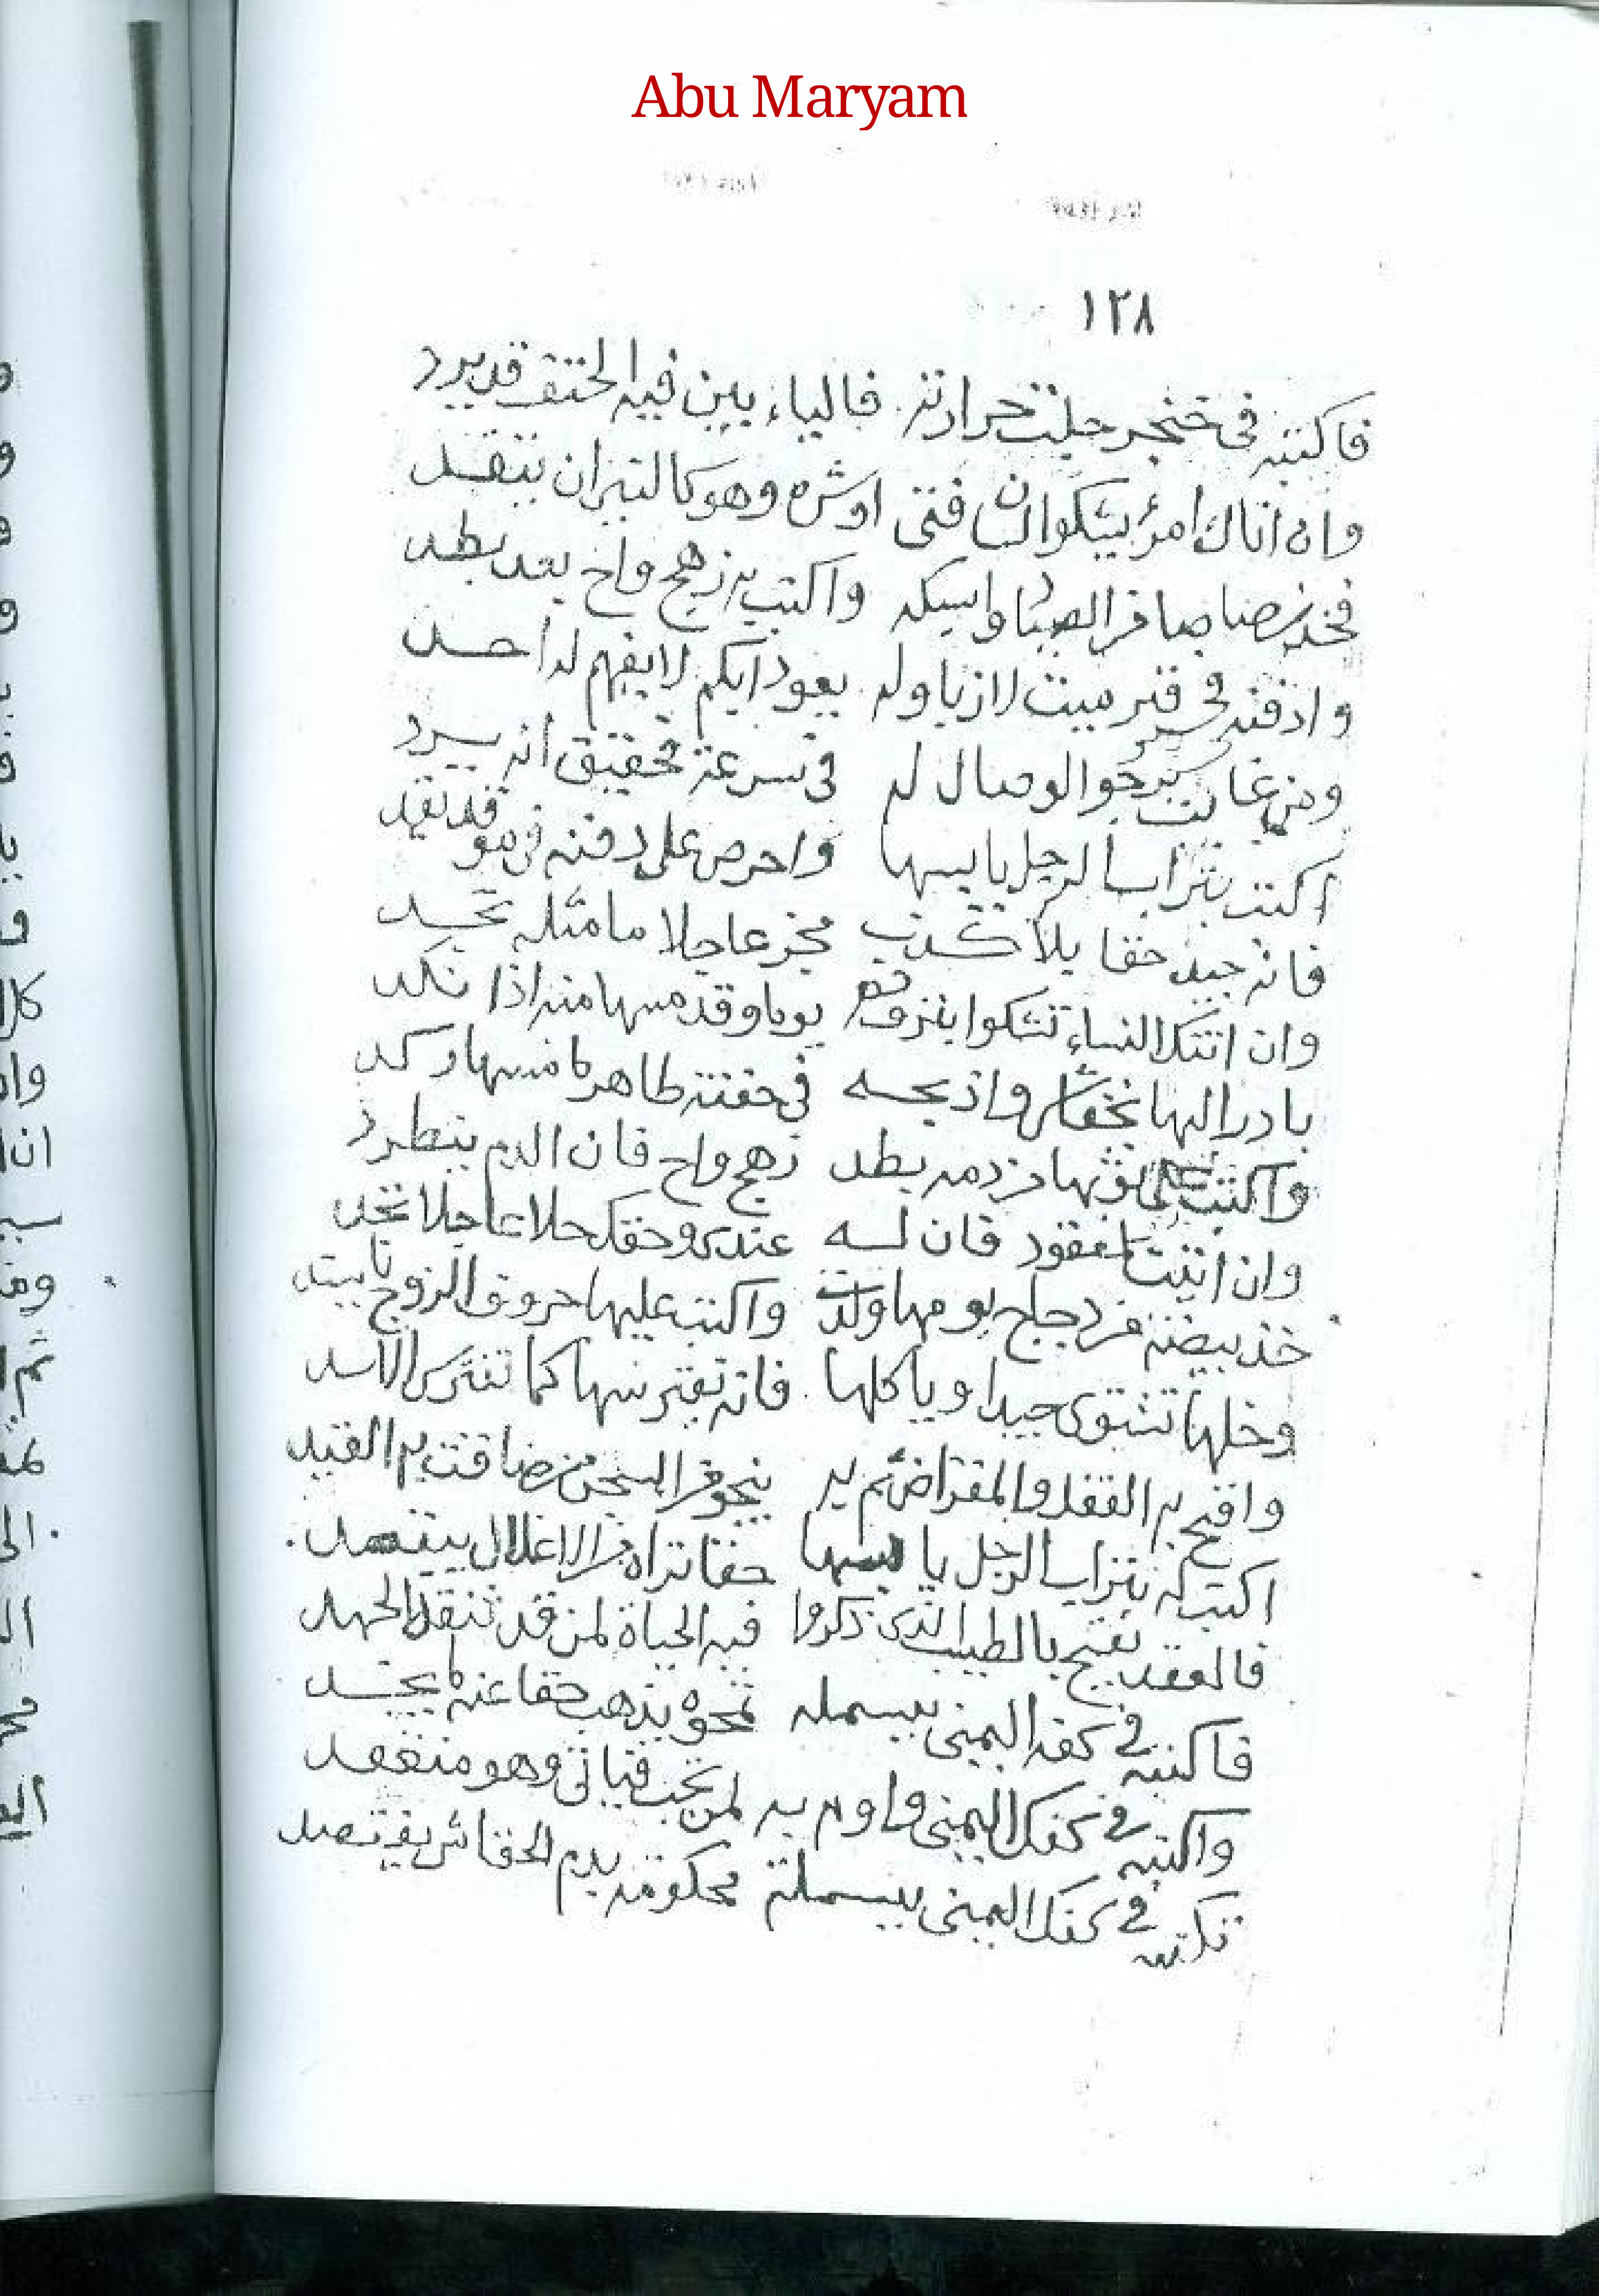 Abu Maryam
١٢٨
فاكتبه فى خنجر جلت حرارته فالياء يبن فيه الحتف قد يرد
وان اتاك امرؤ يشكوا لسان فتى او شره وهو كالنيران يتقد
فخذ رصاصا من الصياد واسبكه واكتب به زهج واح بعد بطد
وادفنه فى قبر ميت لا زيا وله يعود ابكم لا يفهم له احد
ومن غائب ترجوا لوصال له فى سرعة تحقيق انه يرد
اكتب بتراب الرجل يابسها واحرص على دفنه فى موقد تقد
فانه جيد حقا بلا كذب مخبر عاجلا ما مثله تجد
وان اتتك النساء تشكوا بنزف دم يوما وقد مسها منه اذا نكد
بادر اليها بخفاش واذبحه فى حفنة طاهرا منها ركد
واكتب على ثوبها من دمه بطد زهج واح فان الدم ينطرد
وان اتيت لمعقود فان له عندى وحقك حلا عاجلا تجد
خذ بيضة من دجاج يومها ولدت واكتب عليها حروف الزوج
وخلها تشوى جيدا وياكلها فانه يفترسها كما تفترس الاسد
وافتح به القفل والمقراض ثم به ينجو من السجن من ضاقت به القيد
اكتب له بتراب الرجل يابسها حقا تراه من الاغلال
فالعقد يفتح بالطيب الذى ذكروا فيه الحياة لمن قد
فاكتبه فى كفه اليمنى ببسمله تمحوه يذهب حقا عنه ما يجد
واكتبه فى كفك اليمنى به لمن تحب فياتى وهو
تكتبه فى كفك اليمنى ببسملة بدم الخفاش